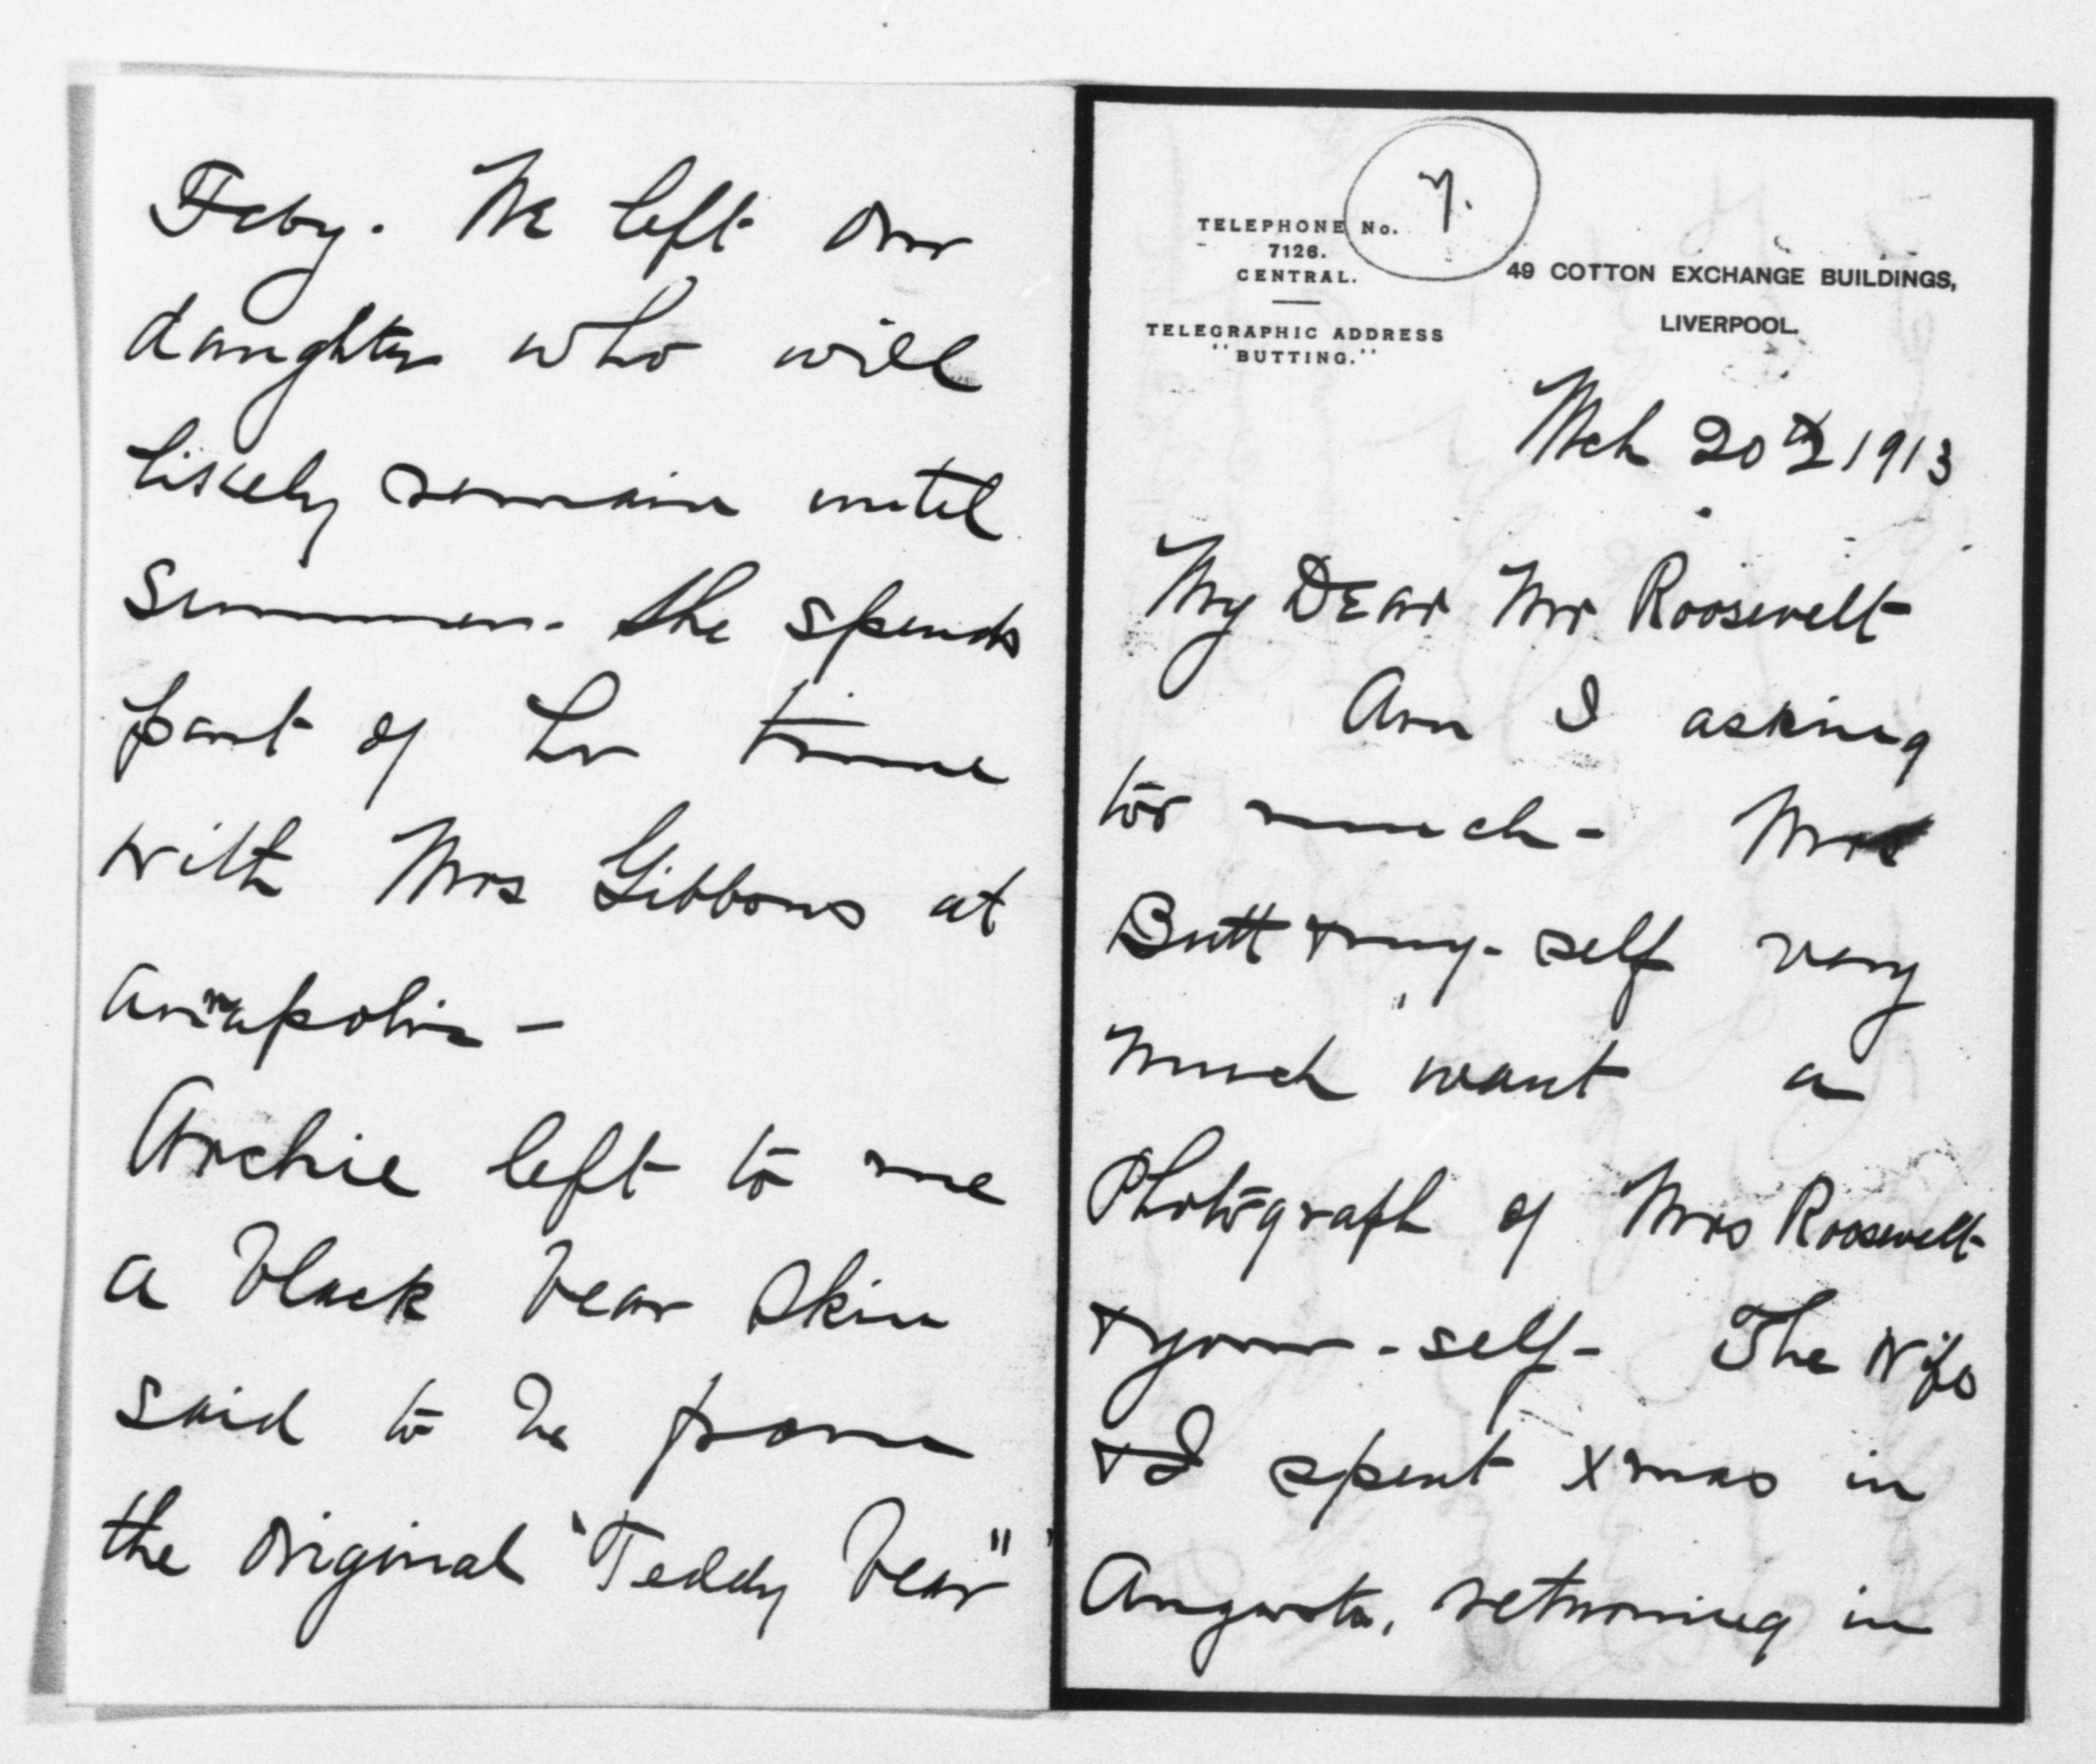 7.
TELEPHONE No.
7126.
CENTRAL.
TELEGRAPHIC ADDRESS
"BUTTING."
49 COTTON EXCHANGE BUILDINGS,
LIVERPOOL.
Mch 20th 1913
My Dear Mr Roosevelt
Am I asking
too much - Mrs
Butt & my-self very
much want a
Photograph of Mrs Roosevelt
& your-self - The Wife
& I spent Xmas in
Augusta, returning in
Feby. We left our
daughter who will
likely remain until
Summer. She spends
part of her time
with Mrs Gibbons at
Annapolis -
Archie left to me
a black bear skin
said to be from
the original "Teddy bear"